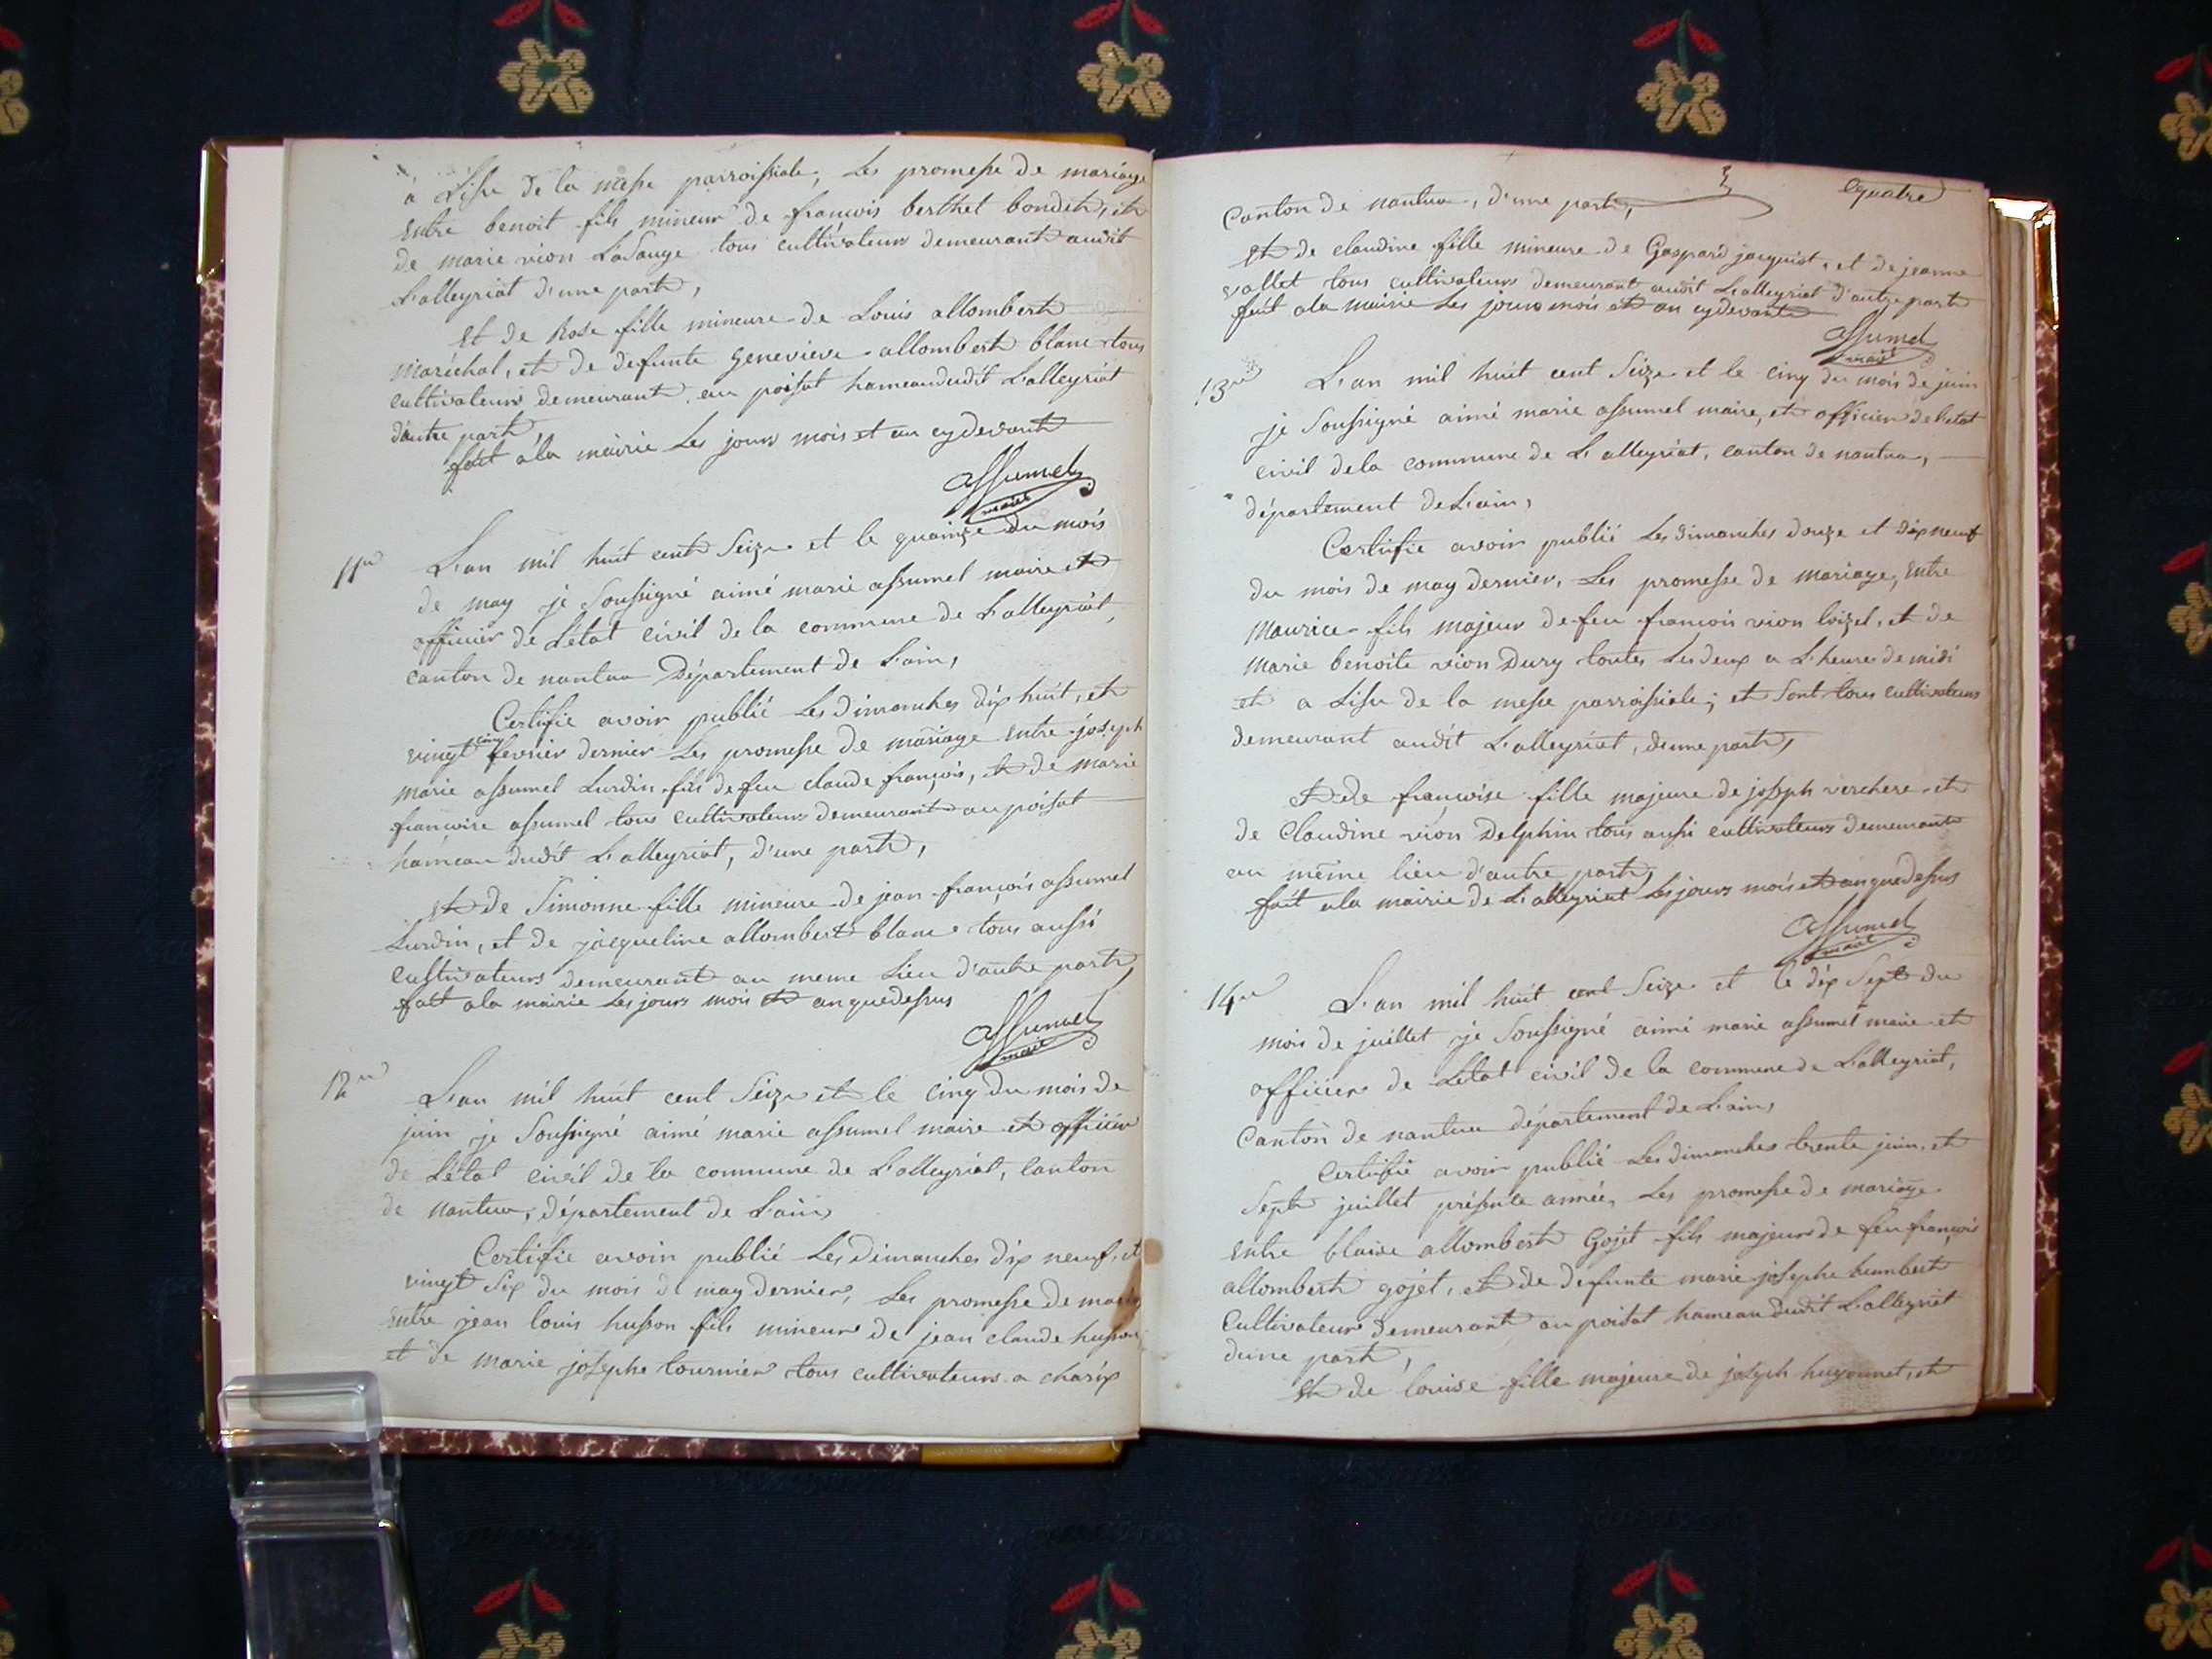 a L'isse de la messe parroissiale, Les promesse de mariage
entre benoit fils mineur de francois berthet bondet, et
de marie vion LaSauge tous cultivateurs demeurant audit
L'alleyriat d'une part,
et de Rose fille mineure de Louis allombert
maréchal, et de defunte genevieve allombert blanc tous
cultivateurs demeurant au poisat hameau dudit L'alleyriat
d'autre part,
fait a la mairie Les jours mois et an cy devant
assumel
maire
11e
L'an mil huit cent Seize et le quainze du mois
de may je Soussigné aimé marie assumel maire et
officier de L'état civil de la commune de L'alleyriat,
canton de nantua Département de L'ain,
Certifie avoir publié Les dimanches dix huit, et
vingt cinq fevrier dernier Les promesse de mariage entre joseph
marie assumel Lurdin fils de feu claude françois, et de marie
francoise assumel tous cultivateurs demeurant au poisat
hameau dudit L'alleyriat, d'une part,
et de Simonne fille mineure de jean françois assumel
Lurdin, et de jacqueline allombert blanc tous aussi
cultivateurs demeurant au meme Lieu d'autre part,
fait a la mairie Les jours mois et an que dessus
assumel
maire
12e
L'an mil huit cent Seize et le cinq du mois de
juin je Soussigné aimé marie assumel maire et officier
de L'état civil de la commune de L'alleyriat, canton
de nantua, département de L'ain,
Certifie avoir publié Les dimanches dix neuf, et
vingt Six du mois de may dernier, Les promesse de mariage
entre jean louis husson fils mineur de jean claude husson
et de marie josephe tournier tous cultivateurs a charix
quatre
Canton de nantua, d'une part,
et de claudine fille mineure de Gaspard jacquiot, et de jeanne
vallet tous cultivateurs demeurant audit L'alleyriat d'autre part
fait a la mairie Les jours mois et an cy devant
assumel
maire
13e
L'an mil huit cent Seize et le cinq du mois de juin
je Soussigné aimé marie assumel maire, et officier de L'etat
civil de la commune de L'alleyriat, canton de nantua,
département de L'ain,
Certifie avoir publié Les dimanches douze et dix neuf
du mois de may dernier, Les promesse de mariage, entre
maurice fils majeur de feu francois vion loizel, et de
marie benoite vion Dury toutes Les deux a L'heure de midi
et a L'isse de la messe parroissiale; et Sont tous cultivateurs
demeurant audit L'alleyriat, d'une part,
et de françoise fille majeure de joseph verchere et
de Claudine vion Delphin tous aussi cultivateurs demeurant
au même lieu d'autre part,
fait a la mairie de L'alleyriat Les jours mois et an que dessus
assumel
maire
14e
L'an mil huit cent Seize et le dix Sept du
mois de juillet je Soussigné aimé marie assumel maire et
officier de L'état civil de la commune de L'alleyriat,
Canton de nantua département de L'ain,
certifie avoir publié Les dimanches trente juin, et
Sept juillet présente année, Les promesse de mariage
entre blaise allombert Gojet fils majeur de feu françois
allombert gojet, et de defunte marie josephe humbert
Cultivateurs demeurant au poisat hameau dudit L'alleyriat
d'une part,
et de louise fille majeure de joseph hugonnet, et